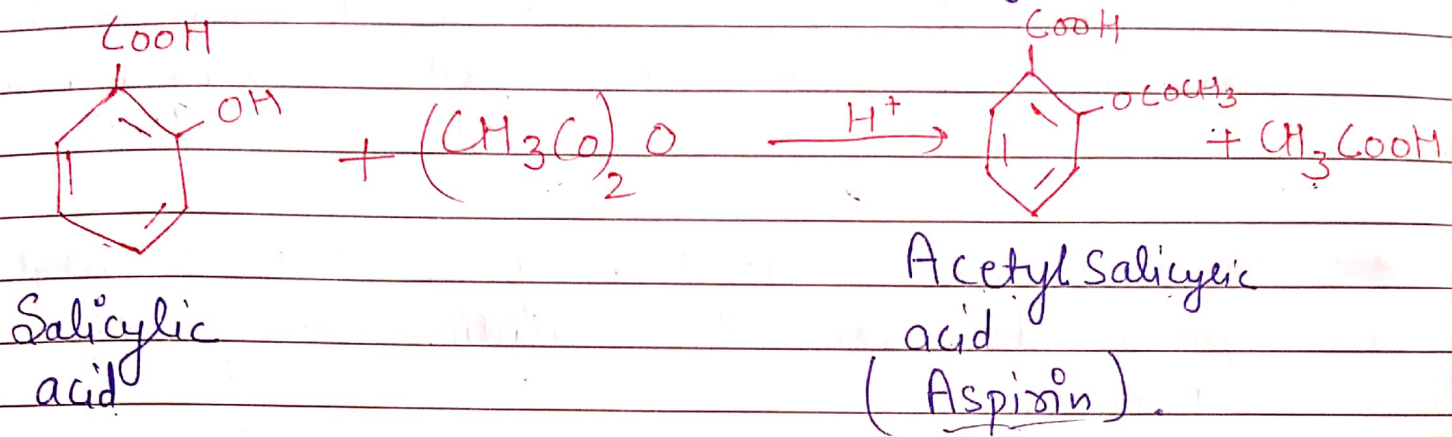 COOH COOH
OH OCOCH3
+ (CH3CO)2 O H+ + CH3COOH
Salicylic acid
Acetyl Salicylic acid
(Aspirin).